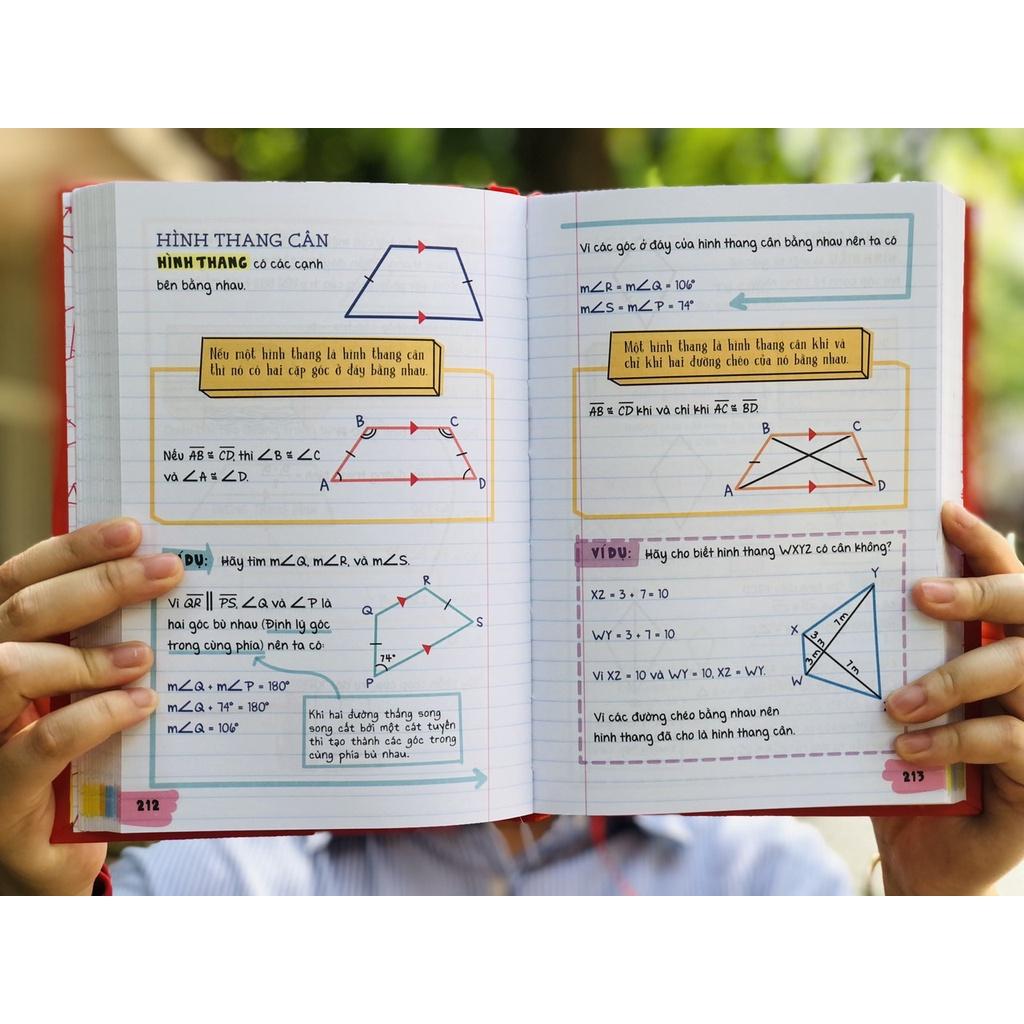 HÌNH THANG CÂN
HÌNH THANG có các cạnh
bên bằng nhau.
Nếu một hình thang là hình thang cân
thì nó có hai cặp góc ở đáy bằng nhau.
Nếu AB ≅ CD, thì ∠B ≅ ∠C
và ∠A ≅ ∠D.
B
C
A
D
DỤ: Hãy tìm m∠Q, m∠R, và m∠S.
Vì QR ∥ PS, ∠Q và ∠P là
hai góc bù nhau (Định lý góc
trong cùng phía) nên ta có:
m∠Q + m∠P = 180°
m∠Q + 74° = 180°
m∠Q = 106°
R
Q
S
74°
P
Khi hai đường thẳng song
song cắt bởi một cát tuyến
thì tạo thành các góc trong
cùng phía bù nhau.
212
Vì các góc ở đáy của hình thang cân bằng nhau nên ta có
m∠R = m∠Q = 106°
m∠S = m∠P = 74°
Một hình thang là hình thang cân khi và
chỉ khi hai đường chéo của nó bằng nhau.
AB ≅ CD khi và chỉ khi AC ≅ BD.
B
C
A
D
VÍ DỤ: Hãy cho biết hình thang WXYZ có cân không?
XZ = 3 + 7 = 10
WY = 3 + 7 = 10
Vì XZ = 10 và WY = 10, XZ = WY.
Vì các đường chéo bằng nhau nên
hình thang đã cho là hình thang cân.
Y
X
7m
3m
3m
7m
W
213